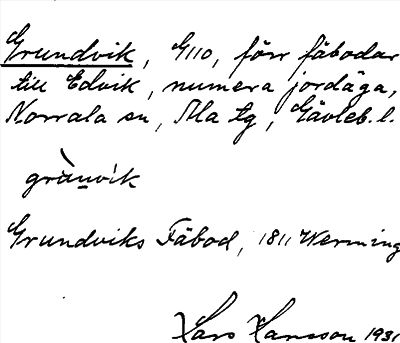 Grundvik, G110, förr fäbodar
till Edvik, numera jordäga,
Norrala sn, Ala tg, Gävleb. l.
grànvik
Grundviks Fäbod, 1811 Werming
Lars Hansson 1931